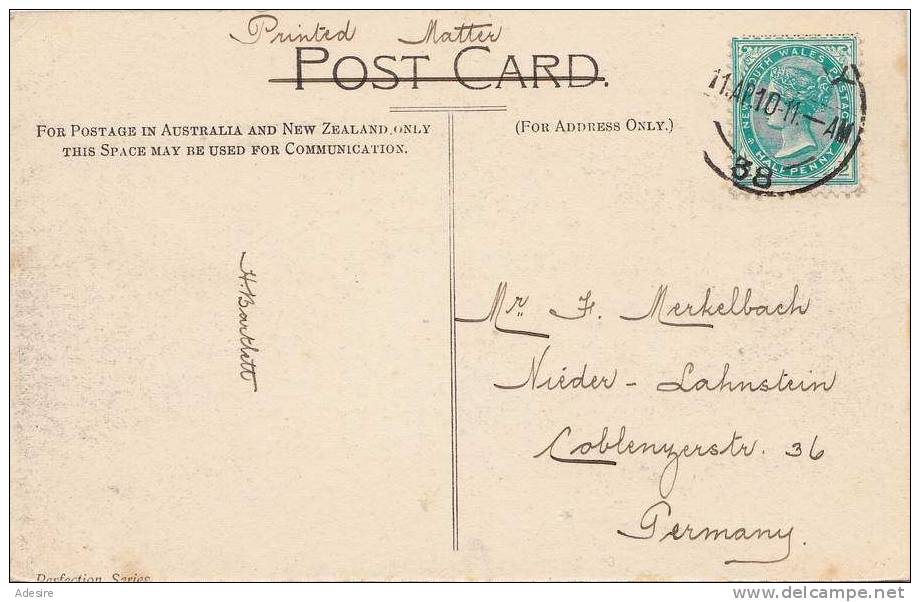 Printed Matter
POST CARD.
FOR POSTAGE IN AUSTRALIA AND NEW ZEALAND, ONLY
THIS SPACE MAY BE USED FOR COMMUNICATION.
(FOR ADDRESS ONLY.)
NEW SOUTH WALES POSTAGE
HALFPENNY
11.AP.10-11.—AM
38
H. Bartlett
Mr. F. Merkelbach
Nieder-Lahnstein
Coblenzerstr. 36
Germany.
Perfection Series
Adesire
delcampe.net